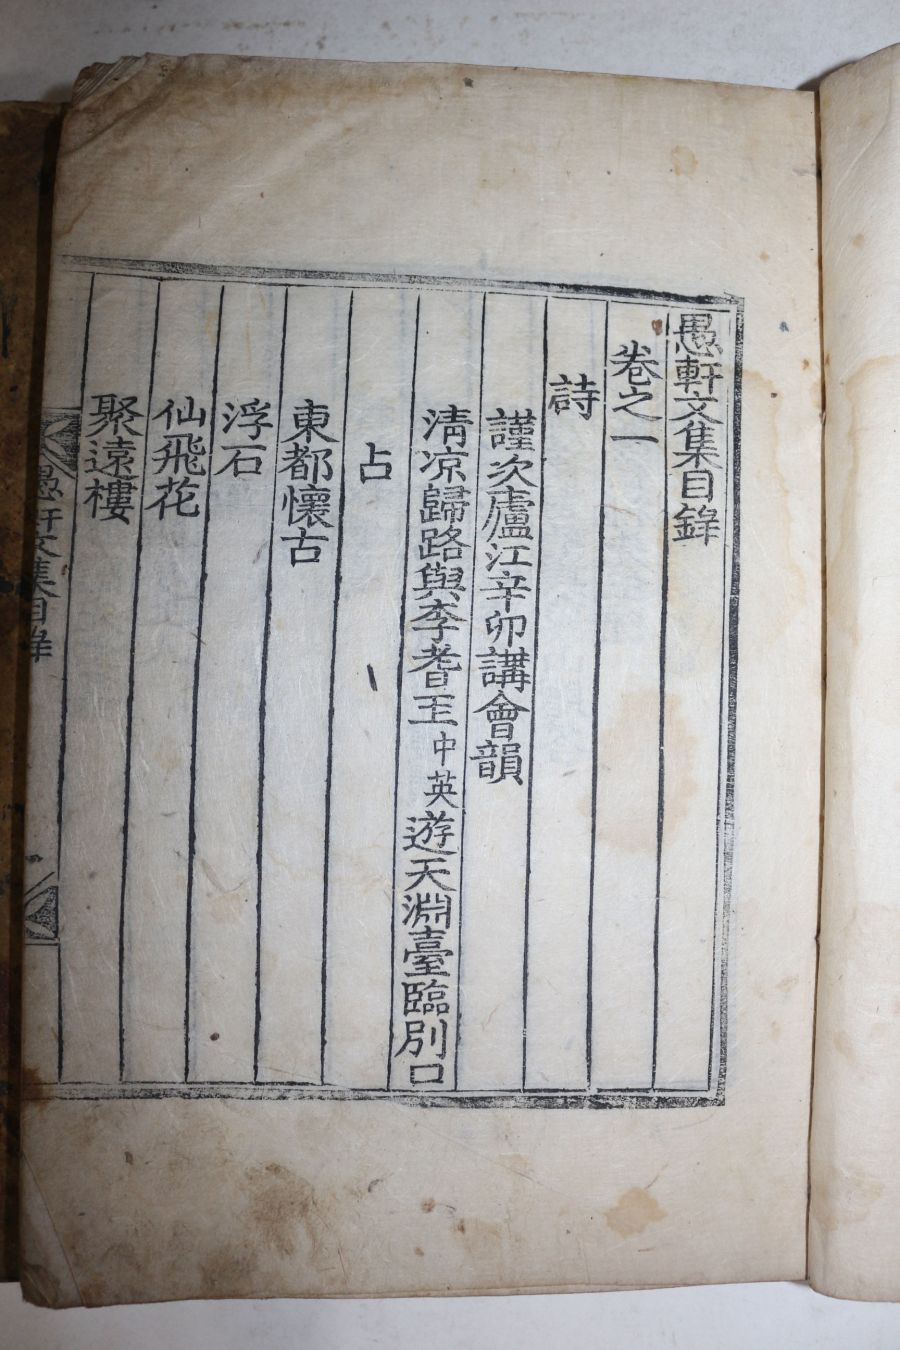 愚軒文集目錄
卷之一
詩
謹次廬江辛卯講會韻
淸凉歸路與李耆玉中英遊天淵臺臨別口
占
東都懷古
浮石
仙飛花
聚遠樓
愚軒文集目錄